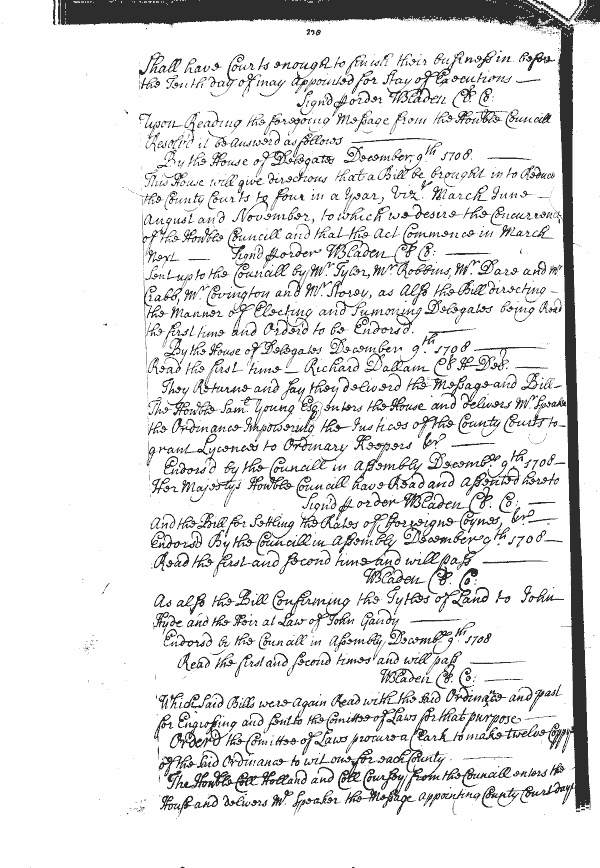 220
Shall have Courts enough to finish their business in before
the Tenth day of may Appointed for Stay of Executions —
Signd p order WBladen Cl. Co:
Upon Reading the foregoing Message from the Honble Councill
Resolv'd it be Answerd as follows
By the House of Delegates December 9th 1708.
This House will give directions that a Bill be brought in to Reduce
the County Courts to four in a Year, Vizt. March June —
August and November, to which we desire the Concurrence
of the Honble Councill and that the Act Commence in March
Next — Signd p order WBladen Cl Co: —
Sent up to the Councill by Mr. Tyler, Mr Robbins, Mr. Dare and Mr
Crabb, Mr. Covington and Mr. Storey, as Also the Bill directing —
the Manner of Electing and Sumoning Delegates being Read
the first time and Orderd to be Endorsd.
By the House of Delegates December 9th. 1708 —
Read the first time — Richard Dallam Cl H Del: —
They Returne and say they deliverd the Message and Bill —
The Honble Saml. Young Esq enters the House and delivers Mr. Speaker
the Ordinance Impowering the Justices of the County Courts to —
grant Lycences to Ordinary Keepers &ca —
Endorsd by the Councill in Assembly Decembr 9th 1708 —
Her Majestys Honble Councill have Read and Assented hereto
Signd p order WBladen Cl. Co: —
And the Bill for Setling the Rates of fforreigne Coynes, &ca —
Endorsd By the Councill in Assembly December 9th. 1708 —
Read the first and Second time and will pass —
WBladen Cl. Co:
As also the Bill Confirming the Tytles of Land to John
Hyde and the Heir at Law of John Gandy —
Endorsd by the Councill in Assembly, Decembr. 9th 1708
Read the first and Second times and will pass —
WBladen Cl. Co: —
Which said Bills were Again Read with the said Ordinance and past
for Engrossing and Sent to the Comittee of Laws for that purpose —
Orderd the Comittee of Laws procure a Clark to make twelve Copys
of the said Ordinance to wit one for each County —
The Honble Coll Holland and Coll Coursey from the Councill enters the
House and delivers Mr. Speaker the Message appointing County Court days